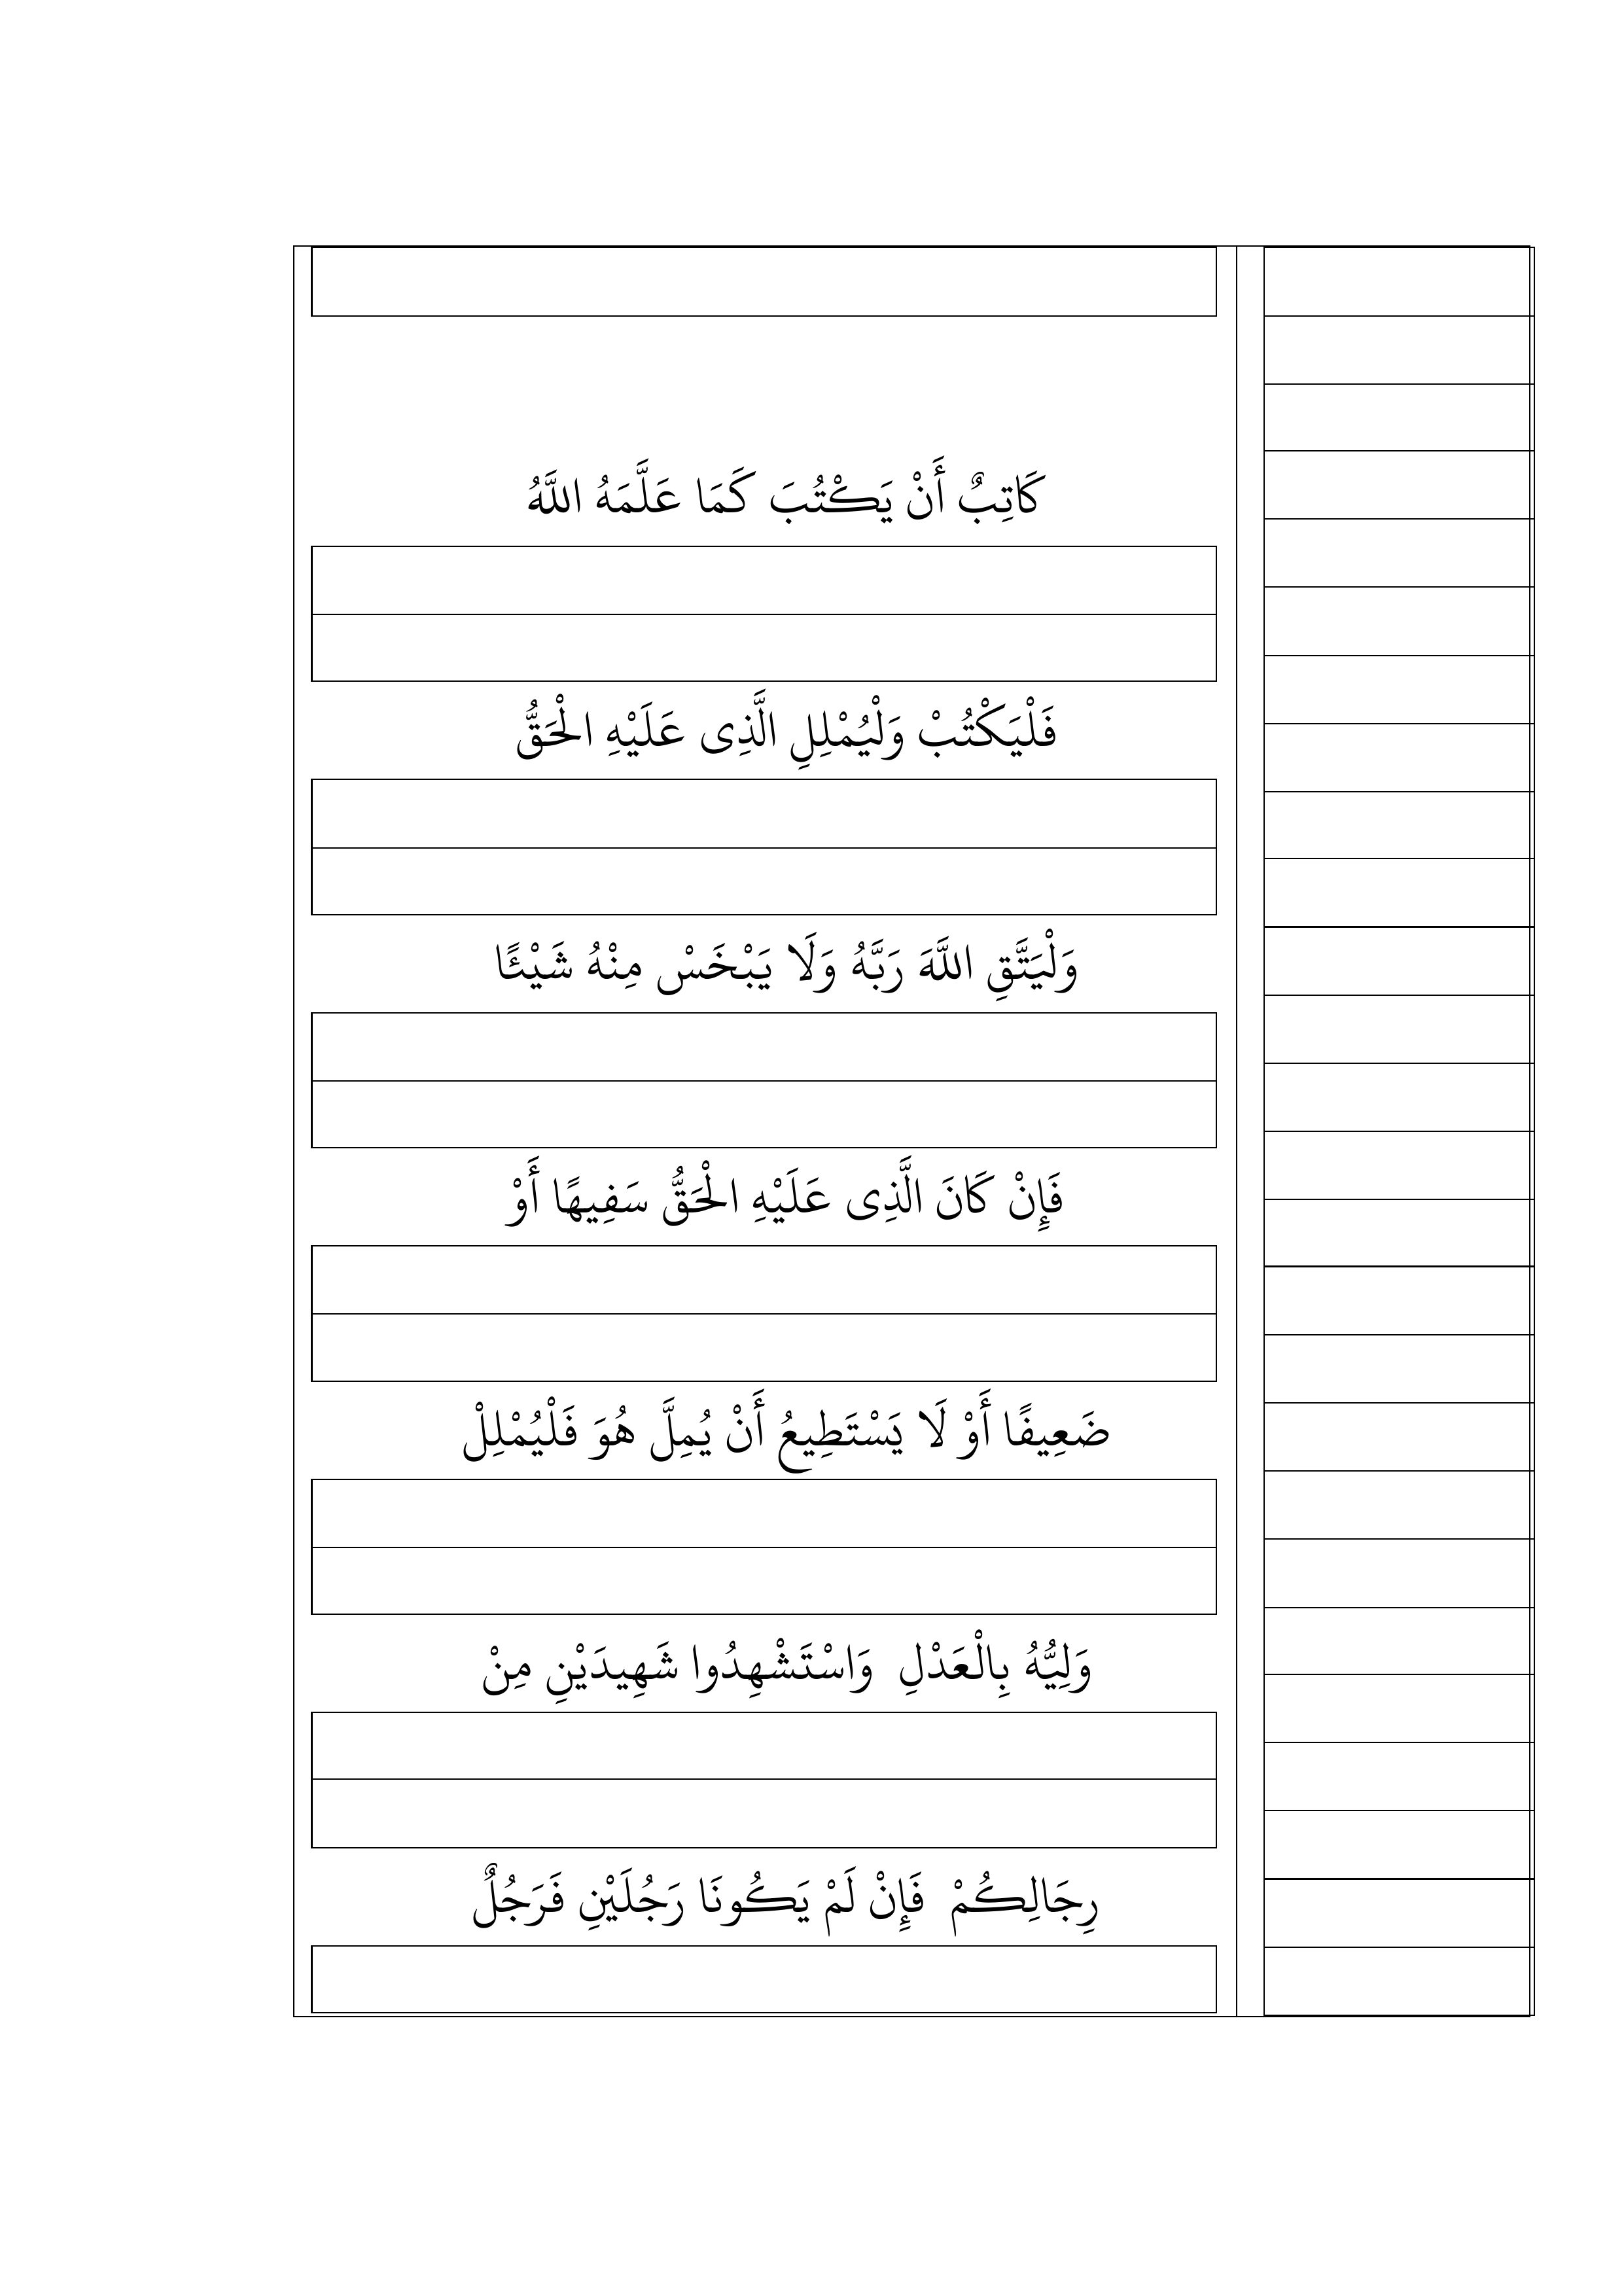 كَاتِبٌ أَنْ يَكْتُبَ كَمَا عَلَّمَهُ اللَّهُ
فَلْيَكْتُبْ وَلْيُمْلِلِ الَّذِى عَلَيْهِ الْحَقُّ
وَلْيَتَّقِ اللَّهَ رَبَّهُ وَلَا يَبْخَسْ مِنْهُ شَيْئًا
فَإِنْ كَانَ الَّذِى عَلَيْهِ الْحَقُّ سَفِيهًا أَوْ
ضَعِيفًا أَوْ لَا يَسْتَطِيعُ أَنْ يُمِلَّ هُوَ فَلْيُمْلِلْ
وَلِيُّهُ بِالْعَدْلِ وَاسْتَشْهِدُوا شَهِيدَيْنِ مِنْ
رِجَالِكُمْ فَإِنْ لَمْ يَكُونَا رَجُلَيْنِ فَرَجُلٌ